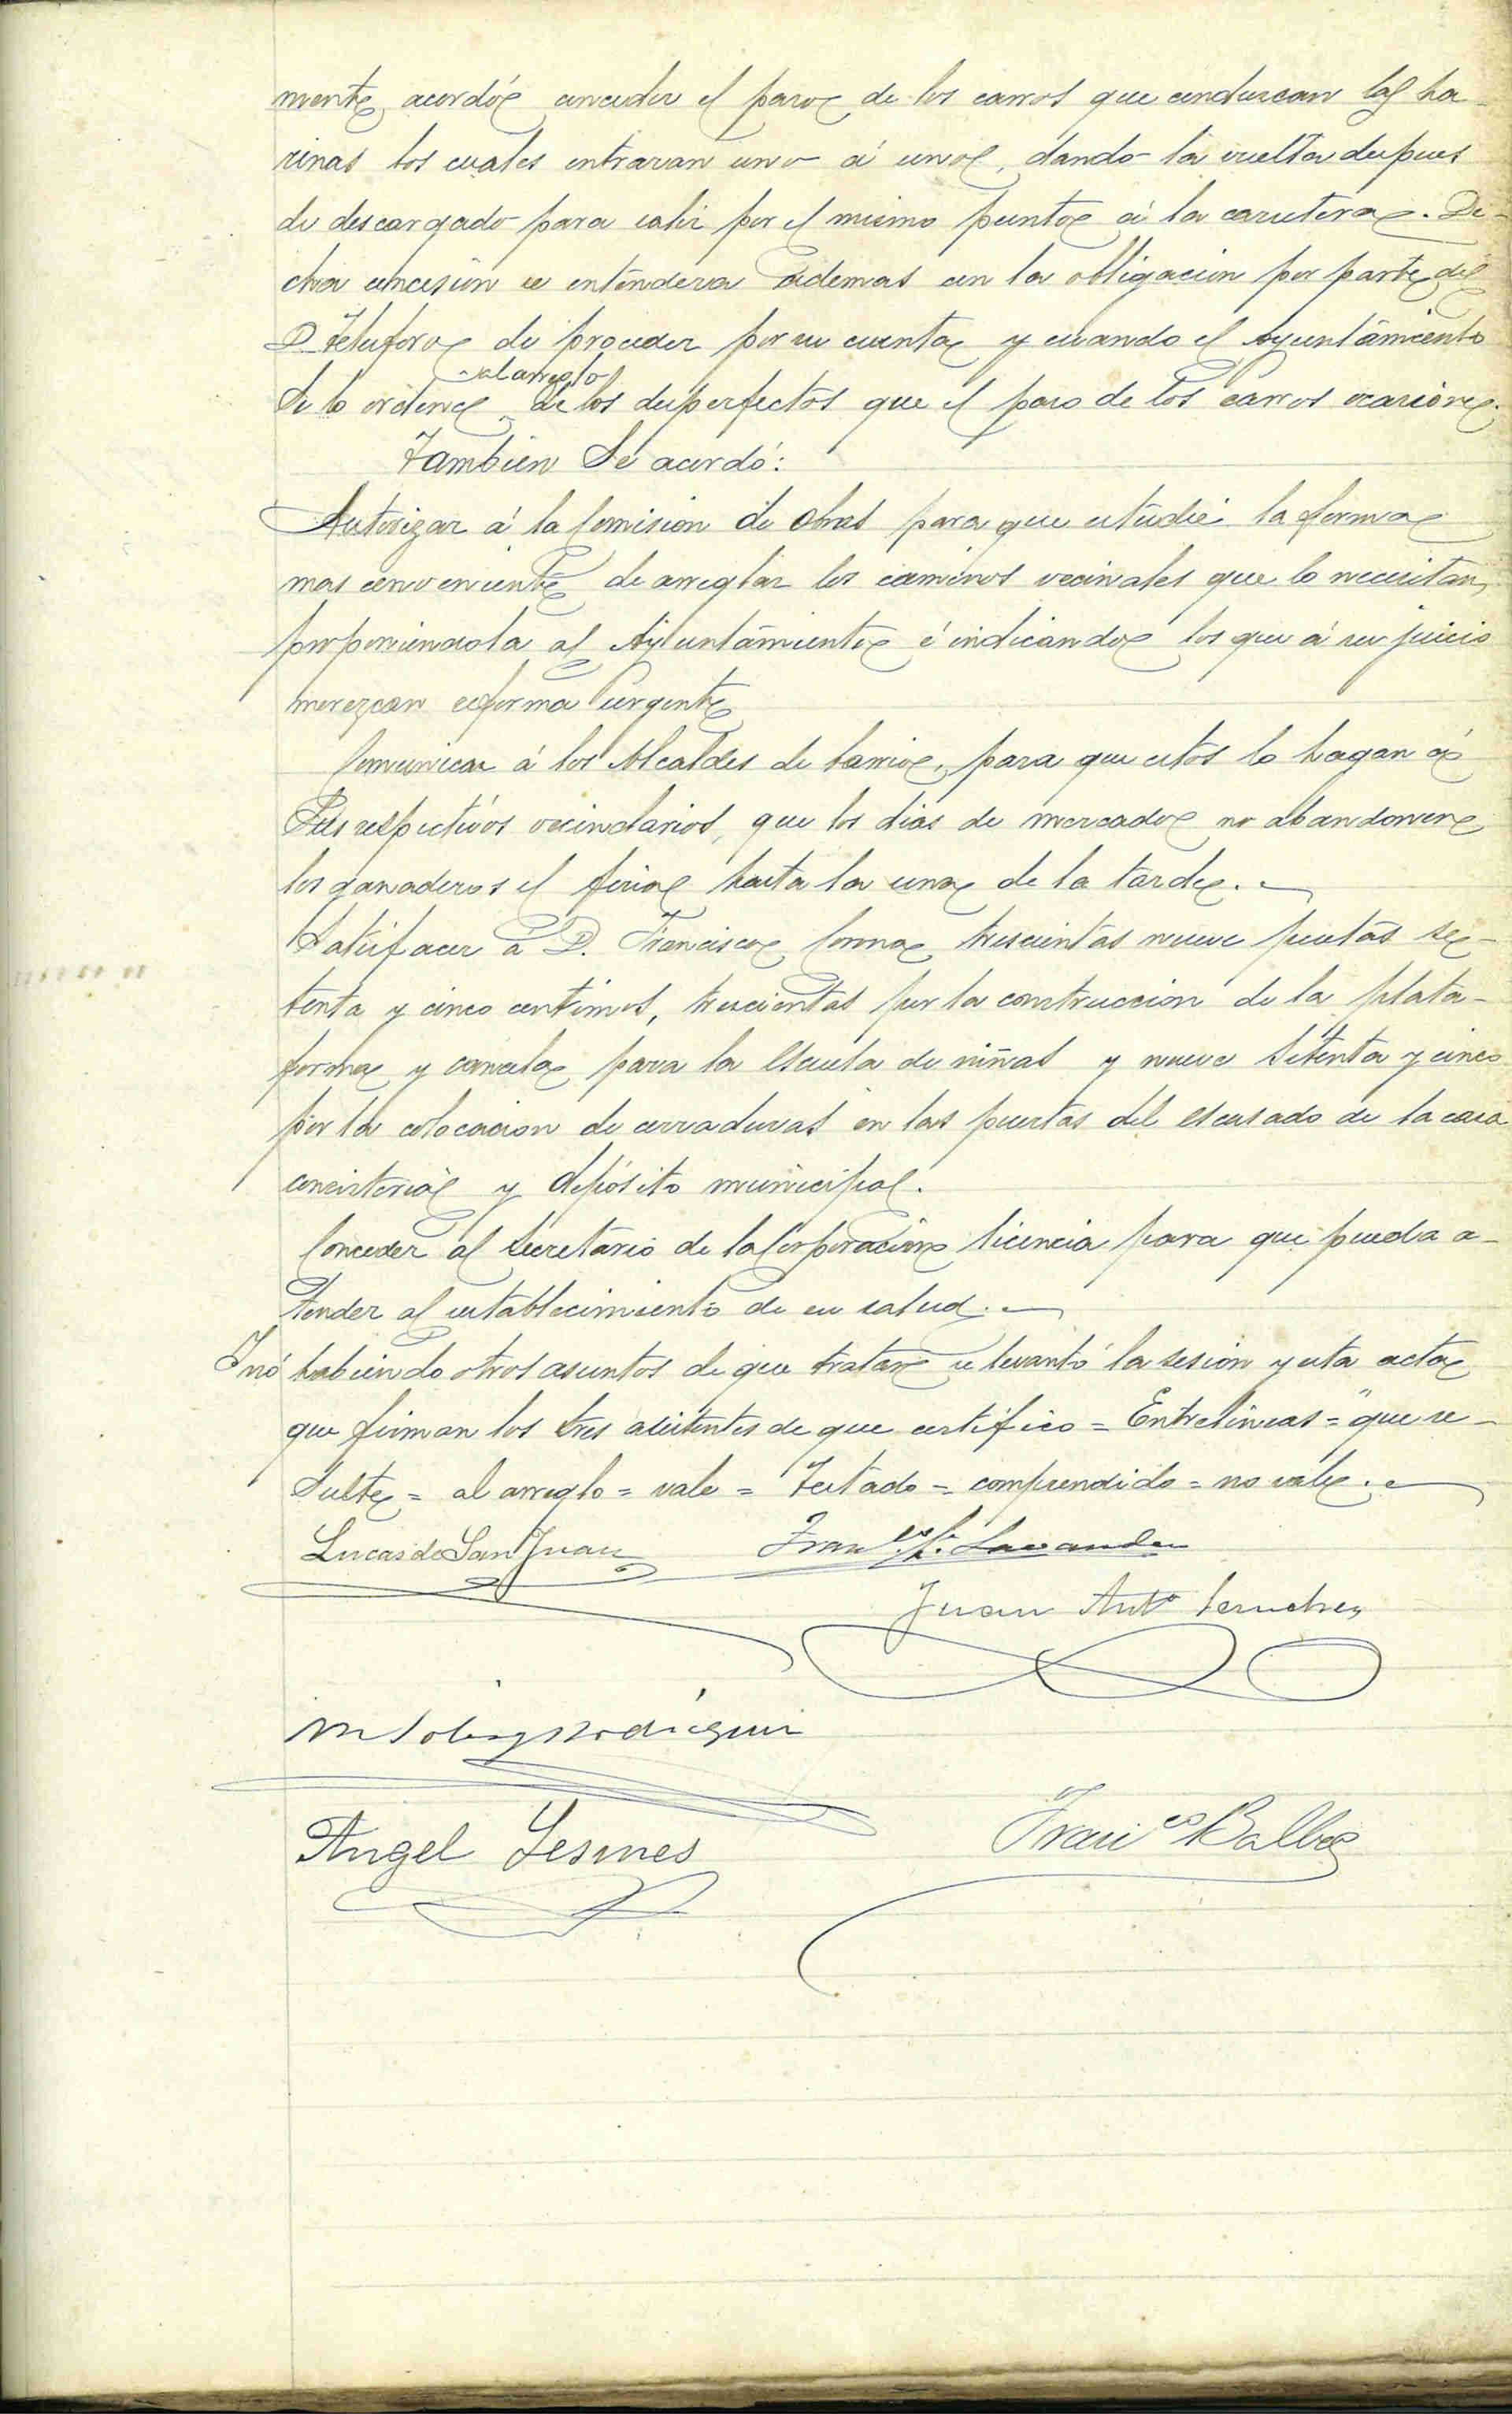 mente, acordó conceder el paso de los carros que conduzcan las ha-
rinas los cuales entraran uno á uno, dando la vuelta despues
de descargado para salir por el mismo punto á la carretera. Di-
cha concesion se entendera ademas con la obligacion por parte de
D. Telesforo de proceder por su cuenta y cuando el Ayuntamiento
al arreglo
se lo ordene, de los desperfectos que el paso de los carros ocasione.
Tambien se acordó:
Autorizar á la Comision de obras para que estudie la forma
mas conveniente de arreglar los caminos vecinales que lo necesitan,
proponiendola al Ayuntamiento é indicando los que á su juicio
merezcan reforma urgente
Comunicar á los Alcaldes de barrio, para que estos lo hagan á
sus respectivos vecindarios, que los dias de mercado no abandonen
los ganaderos el ferial hasta la una de la tarde.
Satisfacer á D. Francisco trescientas nueve pesetas se-
tenta y cinco centimos, trescientas por la construccion de la plata-
forma y cancela para la escuela de niñas y nueve setenta y cinco
por la colocacion de cerraduras en las puertas del escusado de la casa
consistorial y depósito municipal.
Conceder al Secretario de la Corporacion licencia para que pueda a-
tender al restablecimiento de su salud.
Y nó habiendo otros asuntos de que tratar se levantó la sesion y esta acta
que firman los tres asistentes de que certifico = Entrelineas = "que re-
sulte = al arreglo = vale = Testado = comprendido = no vale.
Lucas de San Juan
Franco. Lavander
Juan Anto.
M Rodriguez
Angel Lesmes
Franco Balbas